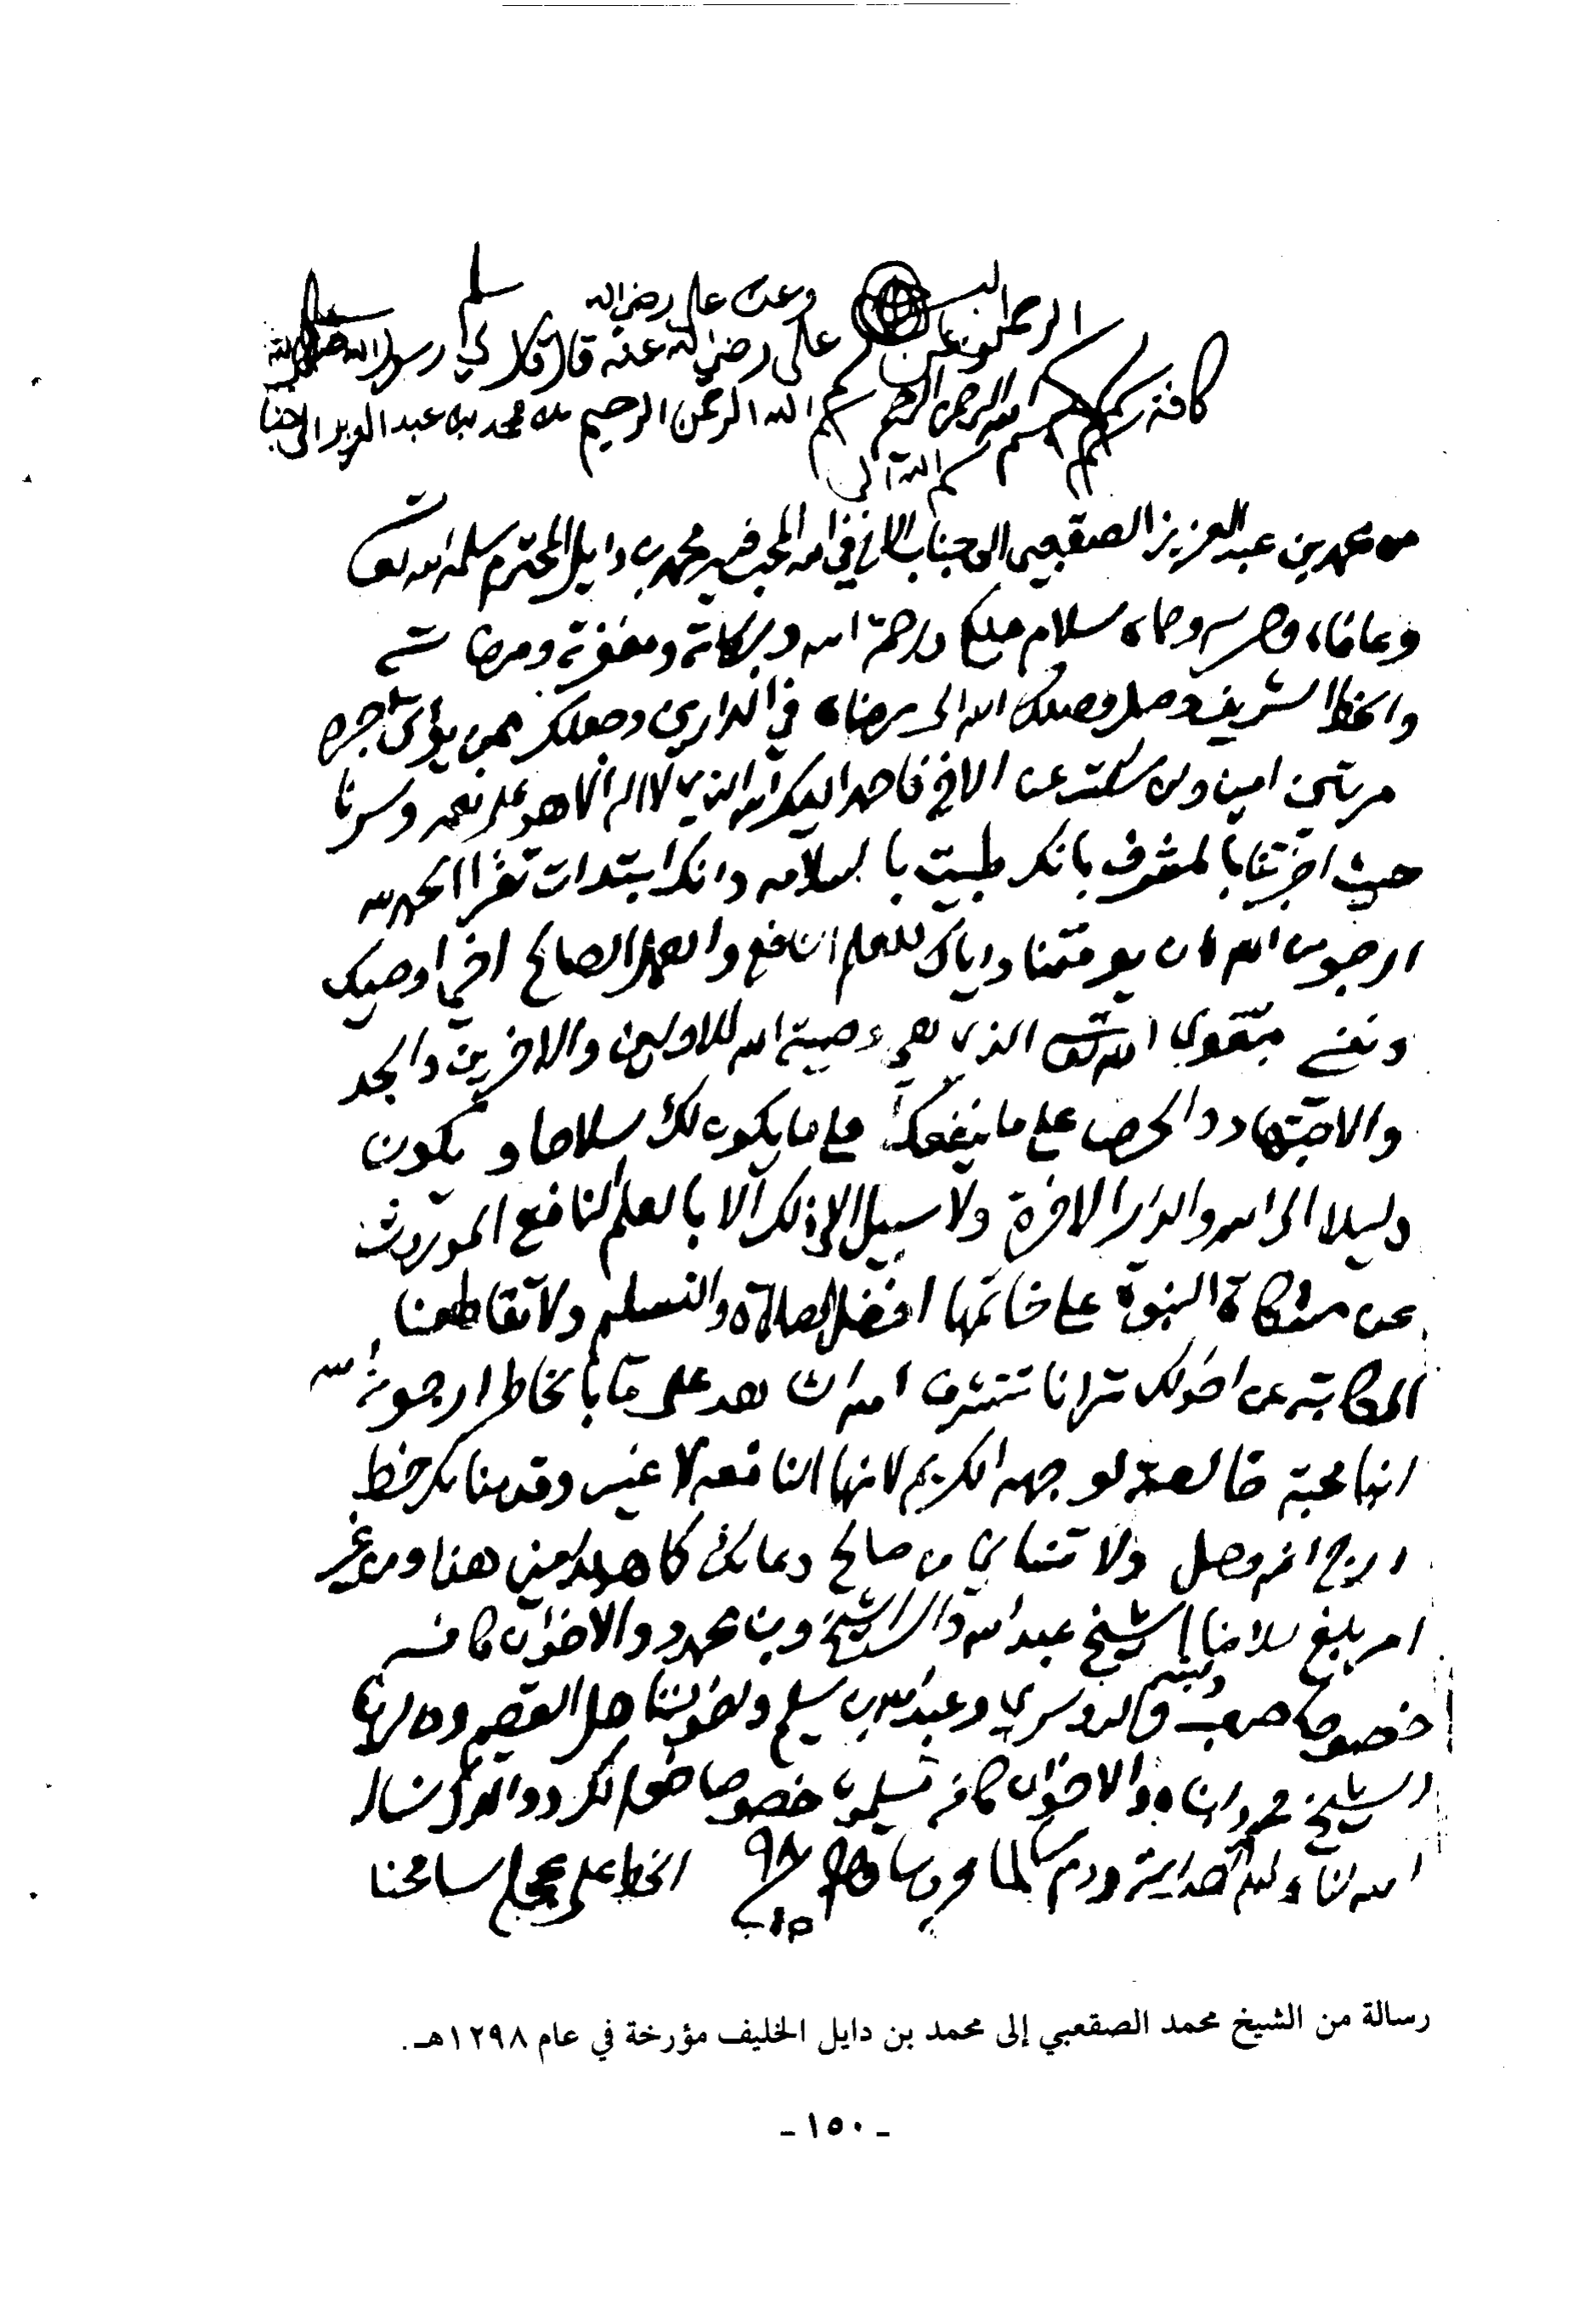 وعن علي رضي الله
الرحمن عن علي رضي الله عنه قال قال لي رسول الله
كافة
بسم الله الرحمن الرحيم بسم الله الرحمن الرحيم من محمد بن عبد العزيز الى جنا
بسم الله
من محمد بن عبد العزيز الصقعبي الى جناب الاخ في الله المحب فيه محمد بن دايل المحترم سلمه الله تعا
وعافاه وحماه سلام عليكم ورحمة الله وبركاته ومغفرته ومرضاته
والخط الشريف وصل وصلك الله الى رضاه في الدارين وجعلك ممن يؤتى اجره
مرتين امين وان سئلت عنا الاخ فاحمد اليك الله الذي لا اله الا هو على نعمه وسرنا
حيث اخبرتنا بالمشرف بانك طيبت بالسلامه وانك ابتدات تقرا الحمد لله
ارجو من الله ان يوفقنا واياك للعلم النافع والعمل الصالح اخي اوصيك
ونفسي بتقوى الله تعا الذي هي وصية الله للاولين والاخرين والجد
والاجتهاد والحرص على ما ينفعك على ما يكون لك سلاحا و يكون
دليلا الى الله والدار الاخرة ولا سبيل الى ذلك الا بالعلم النافع الموروث
عن مشكاة النبوة على خاتمها افضل الصلاة والتسليم ولا تقاطعنا
المكاتبه عن احوالك ترانا نتشرف الله شاهد على ما بالخاطر ارجو من الله
انها محبة خالصة لوجهه الكريم لانها النافعه لا غير وقدمنا لكم خط
ارج انه وصل ولا تنساني من صالح دعائك كما هو لك مني هنا ومن غير
امر بلغ سلامنا الشيخ عبد الله والشيخ وبن محمود والاخوان كافه
خصوصا والدوسري وعبد الله بن سليم واخواننا اهل القصيم ومن لدينا
الشيخ محمد وابناه والاخوان كافه يسلمون خصوصا
الله لنا ولكم الهداية ودم سالما ٩٨ الخط على عجل سامحنا
رسالة من الشيخ محمد الصقعبي إلى محمد بن دايل الخليف مؤرخة في عام ١٢٩٨هـ.
- ١٥٠ -